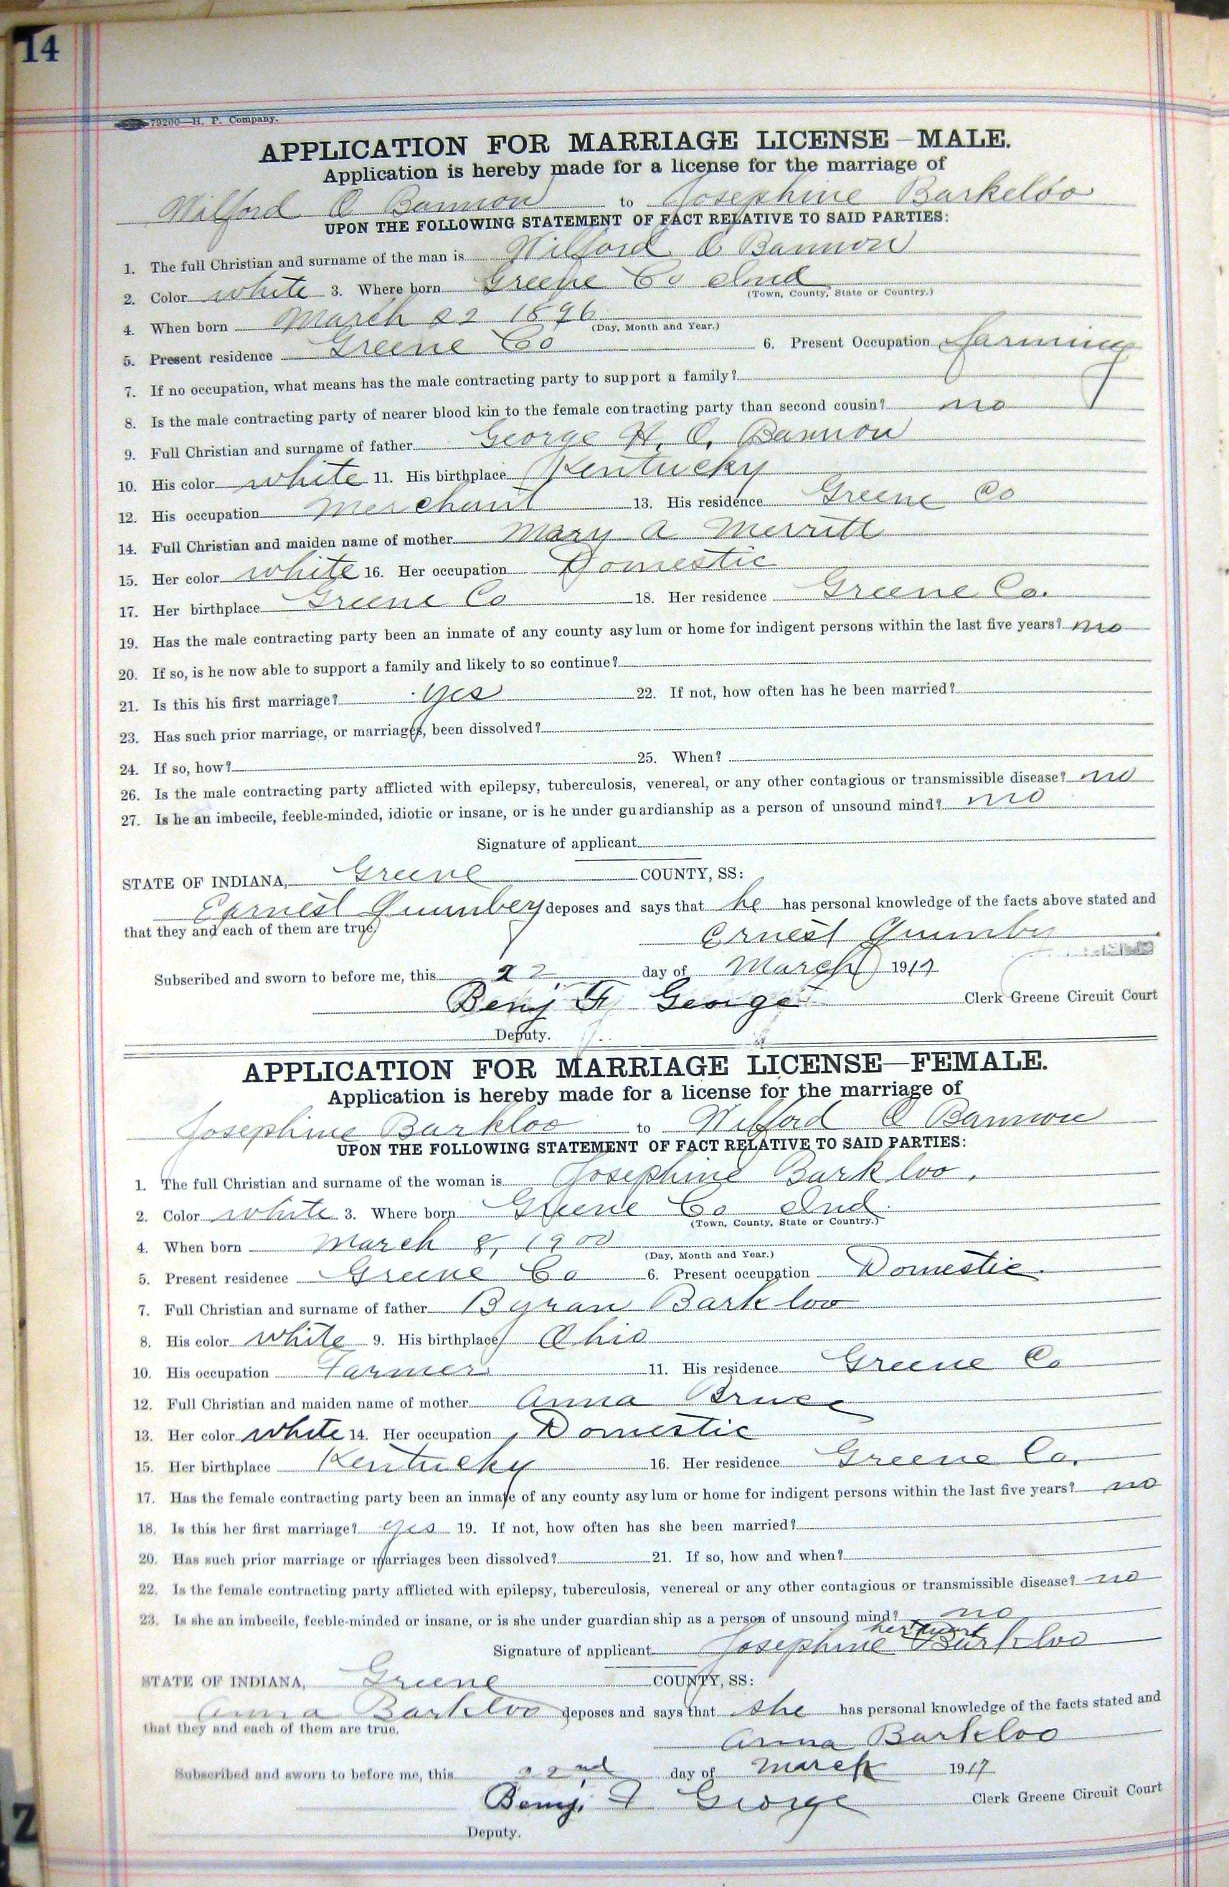 14
79200—H. P. Company.
APPLICATION FOR MARRIAGE LICENSE—MALE.
Application is hereby made for a license for the marriage of
Wilford O Bannon to Josephine Barkeloo
UPON THE FOLLOWING STATEMENT OF FACT RELATIVE TO SAID PARTIES:
1. The full Christian and surname of the man is Wilford O Bannon
2. Color white 3. Where born Greene Co Ind
(Town, County, State or Country.)
4. When born March 22 1896
(Day, Month and Year.)
5. Present residence Greene Co 6. Present Occupation farming
7. If no occupation, what means has the male contracting party to support a family?
8. Is the male contracting party of nearer blood kin to the female contracting party than second cousin? no
9. Full Christian and surname of father George H. O. Bannon
10. His color white 11. His birthplace Kentucky
12. His occupation Merchant 13. His residence Greene Co
14. Full Christian and maiden name of mother Mary A Merritt
15. Her color white 16. Her occupation Domestic
17. Her birthplace Greene Co 18. Her residence Greene Co.
19. Has the male contracting party been an inmate of any county asylum or home for indigent persons within the last five years? no
20. If so, is he now able to support a family and likely to so continue?
21. Is this his first marriage? yes 22. If not, how often has he been married?
23. Has such prior marriage, or marriages, been dissolved?
24. If so, how? 25. When?
26. Is the male contracting party afflicted with epilepsy, tuberculosis, venereal, or any other contagious or transmissible disease? no
27. Is he an imbecile, feeble-minded, idiotic or insane, or is he under guardianship as a person of unsound mind? no
Signature of applicant
STATE OF INDIANA, Greene COUNTY, SS:
Earnest deposes and says that he has personal knowledge of the facts above stated and
that they and each of them are true.
Ernest
Subscribed and sworn to before me, this 22 day of March 1917
Benj F George Clerk Greene Circuit Court
Deputy.
APPLICATION FOR MARRIAGE LICENSE—FEMALE.
Application is hereby made for a license for the marriage of
Josephine Barkloo to Wilford O Bannon
UPON THE FOLLOWING STATEMENT OF FACT RELATIVE TO SAID PARTIES:
1. The full Christian and surname of the woman is Josephine Barkloo.
2. Color white 3. Where born Greene Co Ind.
(Town, County, State or Country.)
4. When born March 8, 1900
(Day, Month and Year.)
5. Present residence Greene Co 6. Present occupation Domestic.
7. Full Christian and surname of father Byran Barkloo
8. His color white 9. His birthplace Ohio
10. His occupation Farmer 11. His residence Greene Co
12. Full Christian and maiden name of mother Anna Bruce
13. Her color white 14. Her occupation Domestic
15. Her birthplace Kentucky 16. Her residence Greene Co.
17. Has the female contracting party been an inmate of any county asylum or home for indigent persons within the last five years? no
18. Is this her first marriage? yes 19. If not, how often has she been married?
20. Has such prior marriage or marriages been dissolved? 21. If so, how and when?
22. Is the female contracting party afflicted with epilepsy, tuberculosis, venereal or any other contagious or transmissible disease? no
23. Is she an imbecile, feeble-minded or insane, or is she under guardian ship as a person of unsound mind? no
Signature of applicant Josephine her Barkloo
STATE OF INDIANA, Greene COUNTY, SS:
Anna Barkloo deposes and says that she has personal knowledge of the facts stated and
that they and each of them are true.
Anna Barkloo
Subscribed and sworn to before me, this 22nd day of March 1917
Benj. F George Clerk Greene Circuit Court
Deputy.